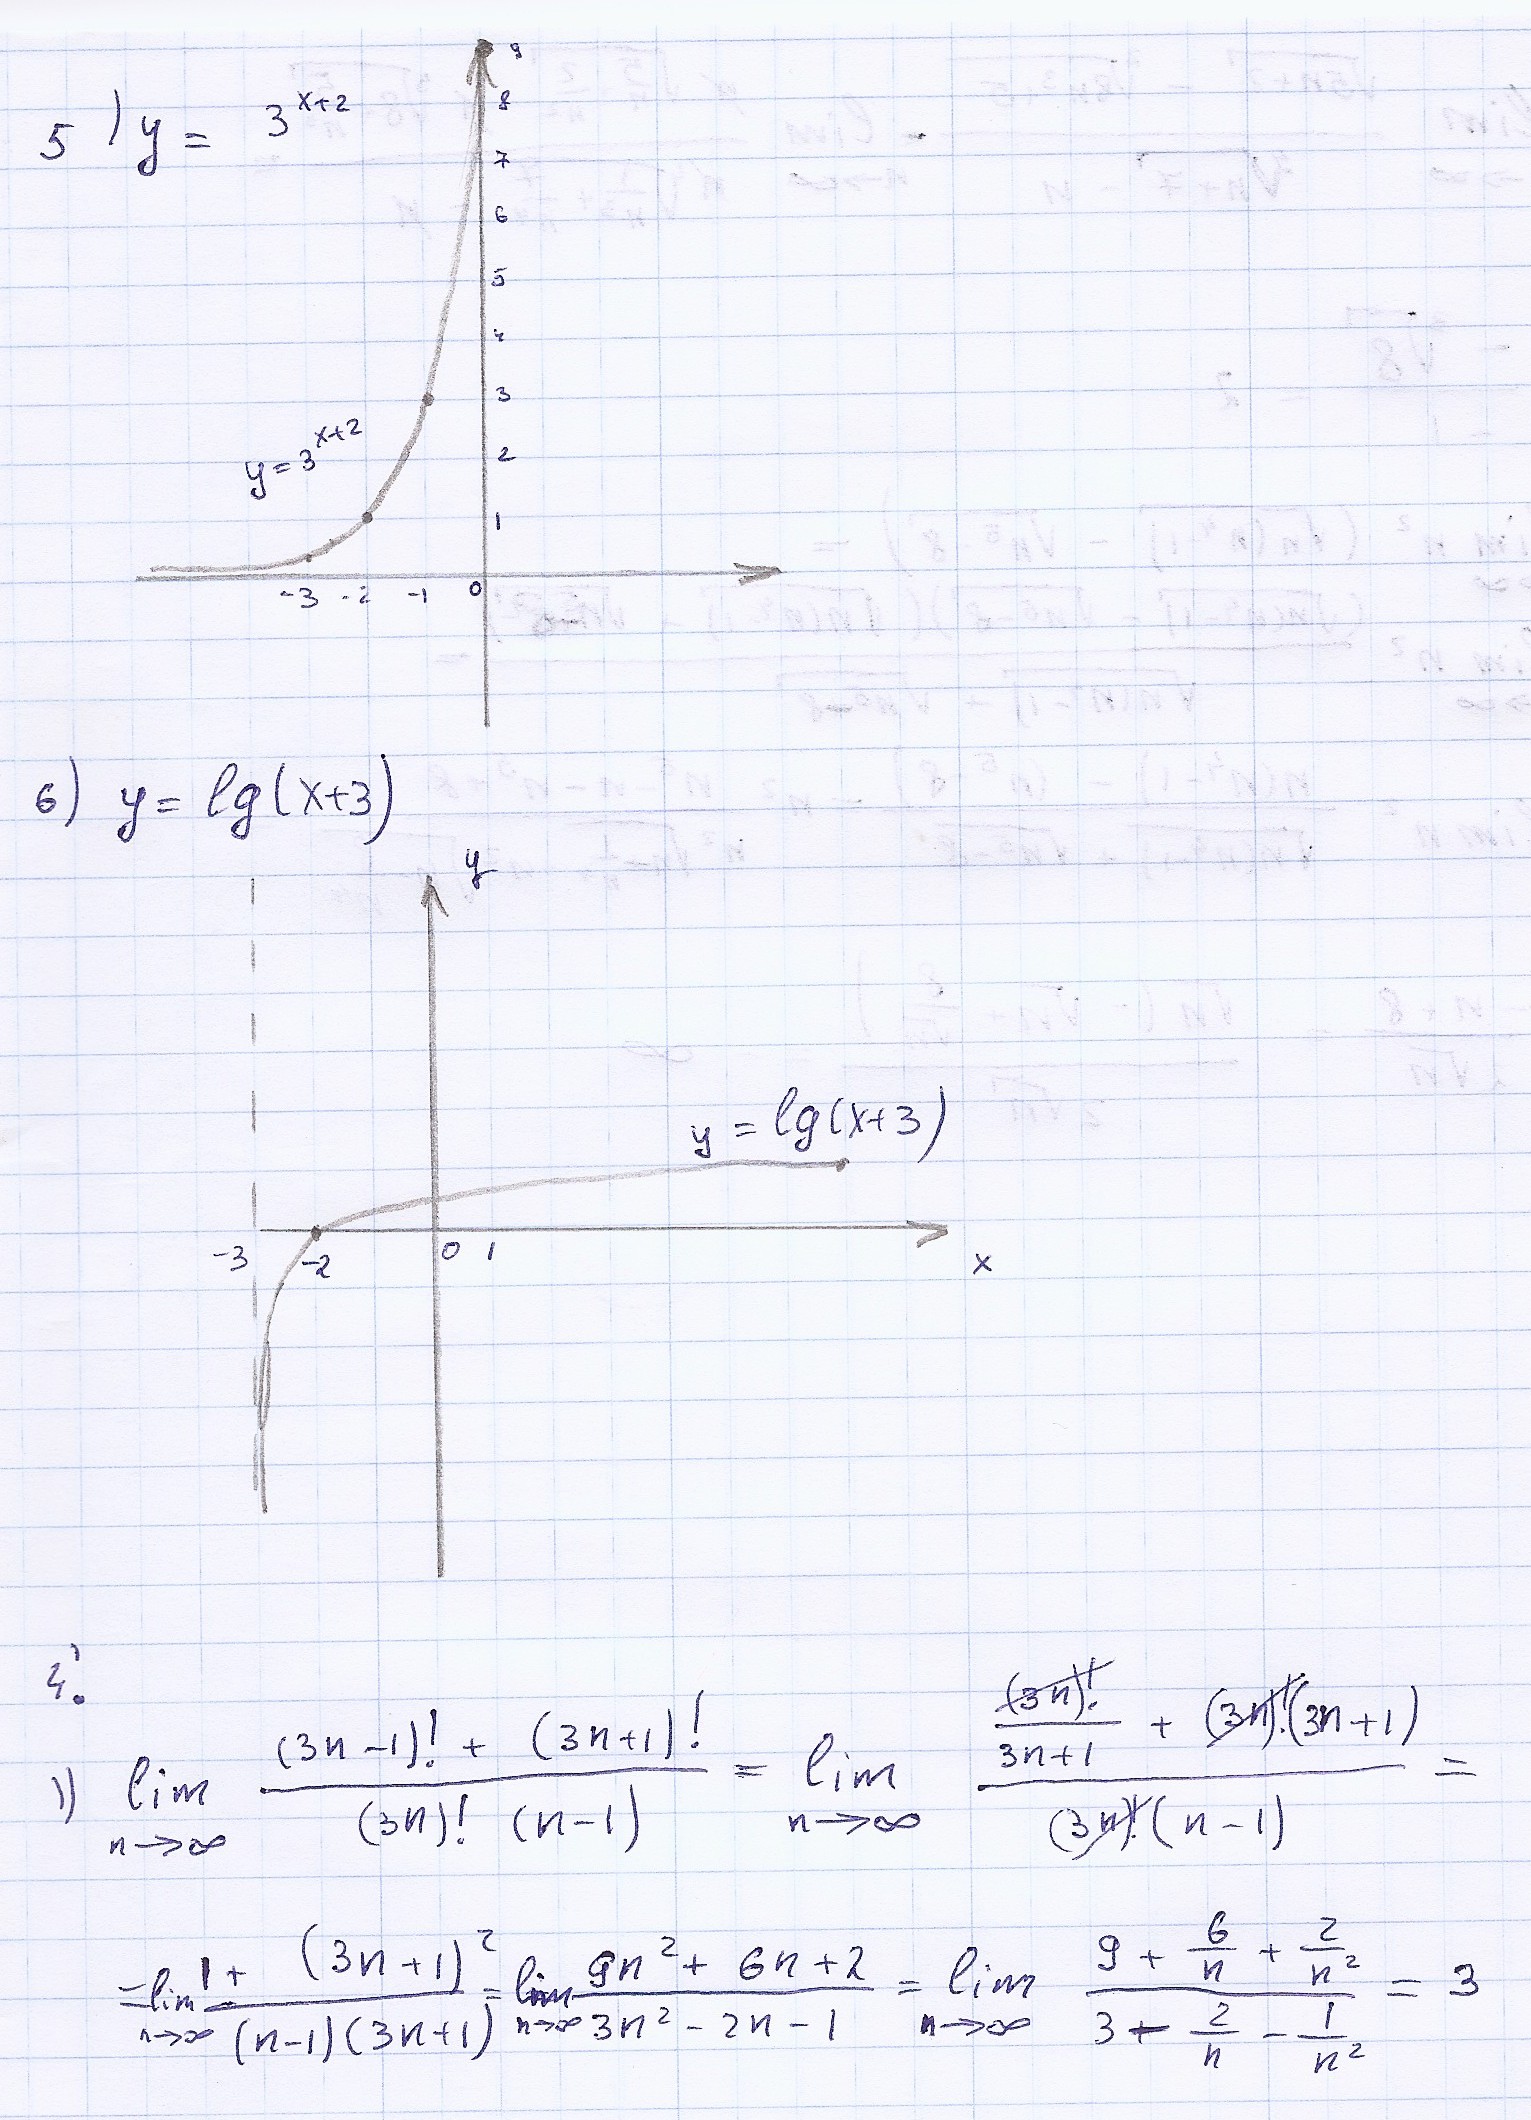 5) y = 3^{x+2}
9
8
7
6
5
4
3
y = 3^{x+2}
2
1
-3 -2 -1 0
6) y = lg(x+3)
y
y = lg(x+3)
-3 -2 0 1 x
4.
1) lim_{n→∞} ((3n-1)! + (3n+1)!) / ((3n)! (n-1)) = lim_{n→∞} ((3n)!/(3n+1) + (3n)!(3n+1)) / ((3n)!(n-1)) =
= lim_{n→∞} (1 + (3n+1)^2) / ((n-1)(3n+1)) = lim_{n→∞} (9n^2 + 6n + 2) / (3n^2 - 2n - 1) = lim_{n→∞} (9 + 6/n + 2/n^2) / (3 - 2/n - 1/n^2) = 3